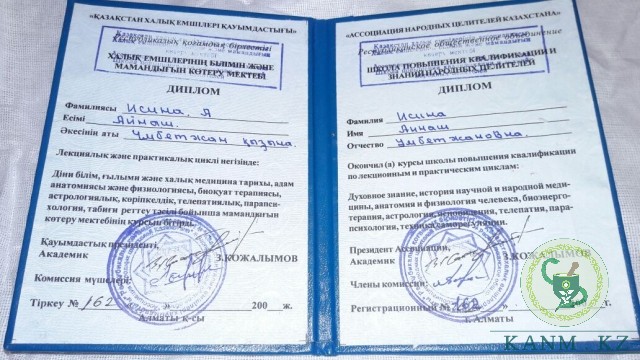 «ҚАЗАҚСТАН ХАЛЫҚ ЕМШІЛЕРІ ҚАУЫМДАСТЫҒЫ»
Республикалық қоғамдық бірлестігі
ХАЛЫҚ ЕМШІЛЕРІНІҢ БІЛІМІН ЖӘНЕ
МАМАНДЫҒЫН КӨТЕРУ МЕКТЕБІ
ДИПЛОМ
Фамилиясы Исина. А
Есімі Айнаш.
Әкесінің аты Үмбетжан қызына.
Лекциялық және практикалық циклі негізінде:
Діни білім, ғылыми және халық медицина тарихы, адам
анатомиясы және физиологиясы, биоқуат терапиясы,
астрологиялық, көріпкелдік, телепатиялық, парапси-
хология, табиғи реттеу тәсілі бойынша мамандығын
көтеру мектебінің курсын бітірді.
Қауымдастық президенті,
Академик З.КОЖАЛЫМОВ
Комиссия мүшелері:
Тіркеу № 162 200 ж.
Алматы к-сы
«АССОЦИАЦИЯ НАРОДНЫХ ЦЕЛИТЕЛЕЙ КАЗАХСТАНА»
Республиканское общественное объединение
ШКОЛА ПОВЫШЕНИЯ КВАЛИФИКАЦИИ И
ЗНАНИЙ НАРОДНЫХ ЦЕЛИТЕЛЕЙ
ДИПЛОМ
Фамилия Исина
Имя Айнаш
Отчество Умбетжановна.
Окончил (а) курсы школы повышения квалификации
по лекционным и практическим циклам:
Духовное знание, история научной и народной меди-
цины, анатомия и физиология человека, биоэнерго-
терапия, астрология, ясновидения, телепатия, пара-
психология, техника саморегуляции.
Президент Ассоциации,
Академик З.КОЖАЛЫМОВ
Члены комиссии:
Регистрационный № 162 200 г.
г. Алматы
KANM.KZ